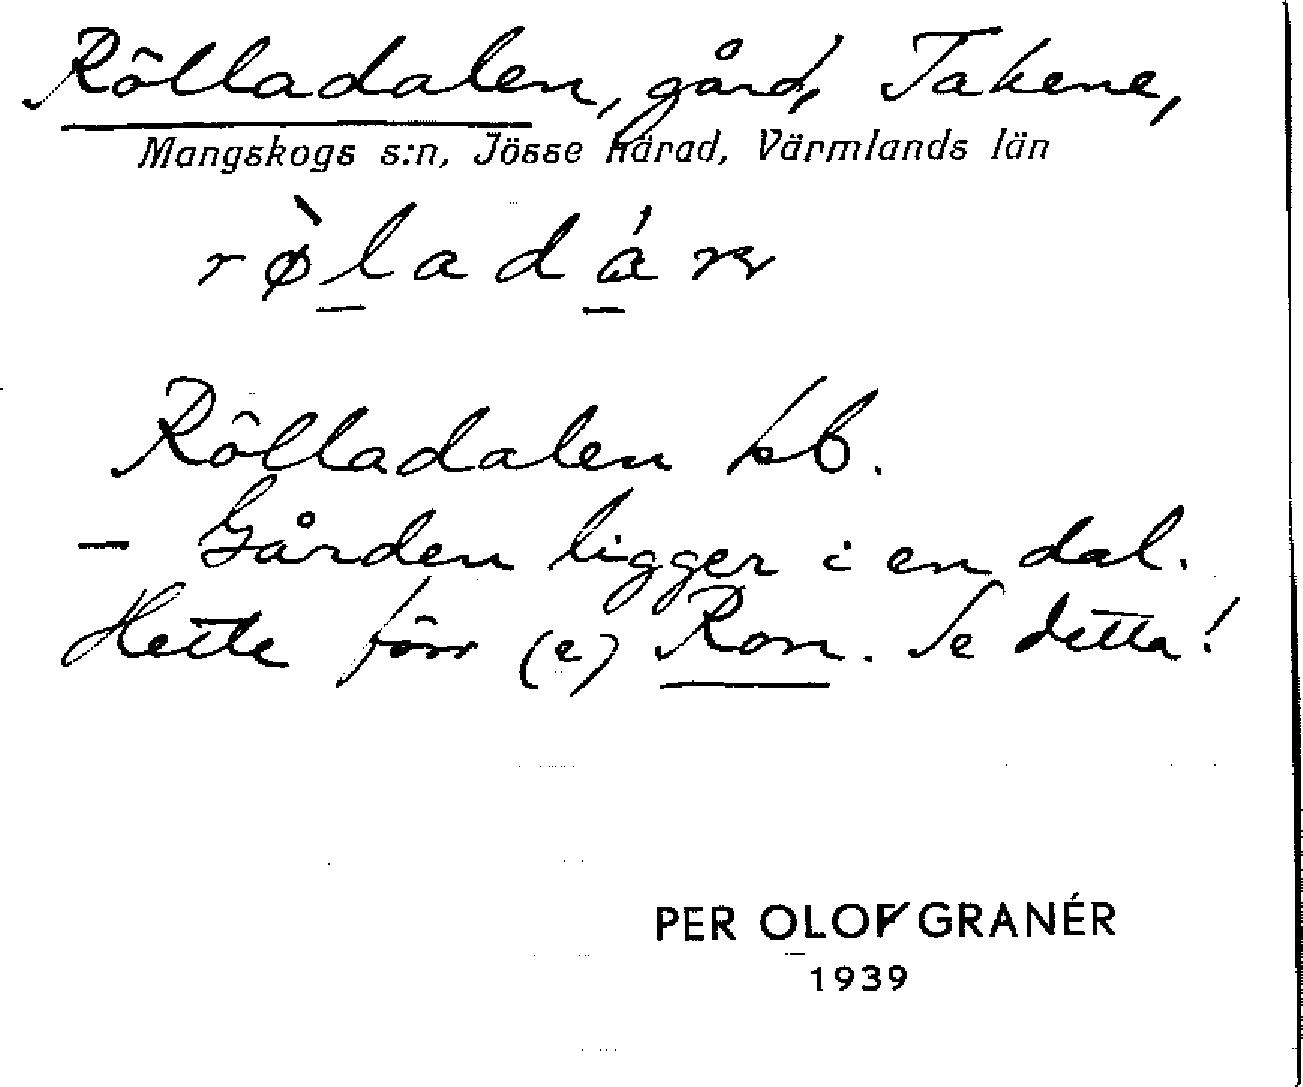 Rölladalen, gård, Takene,
Mangskogs s:n, Jösse härad, Värmlands län
Rölladalen kb.
– Gården ligger i en dal.
Hette förr (e) Rom. Se detta!
PER OLOF GRANÉR
1939